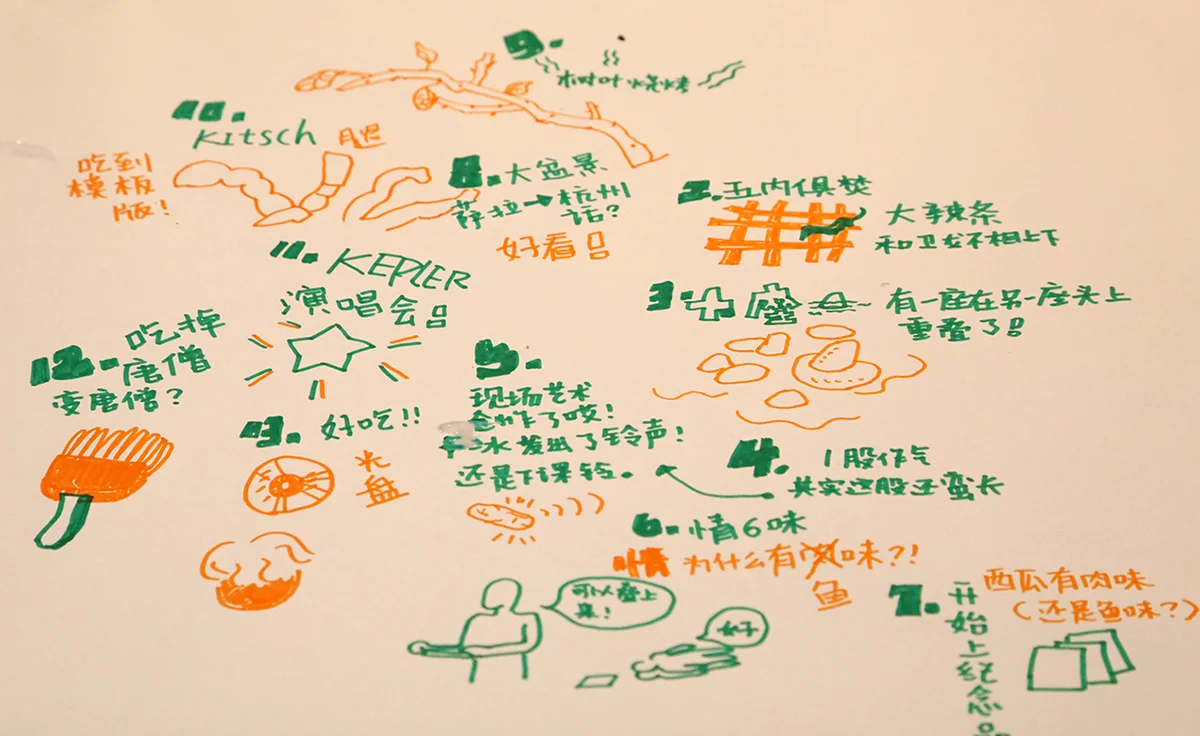 9.
树叶烧烤
10.
Kitsch 腿
吃到
模板
版!
8. 大盆景
萨拉→杭州
话?
好看
2. 五内俱焚
大辣条
和卫龙不相上下
11. KEPLER
演唱会
3.
有一座在另一座头上
重叠了
12. 吃掉
唐僧
变唐僧?
13. 好吃!!
光
盘
5.
现场艺术
合作了哎!
冰发出了铃声!
还是下课铃。
4. 1股作气
其实这股还蛮长
6. 情6味
为什么有味?!
鱼
可以叠上
来!
好
7. 开始上纪念品
西瓜有肉味
(还是鱼味?)